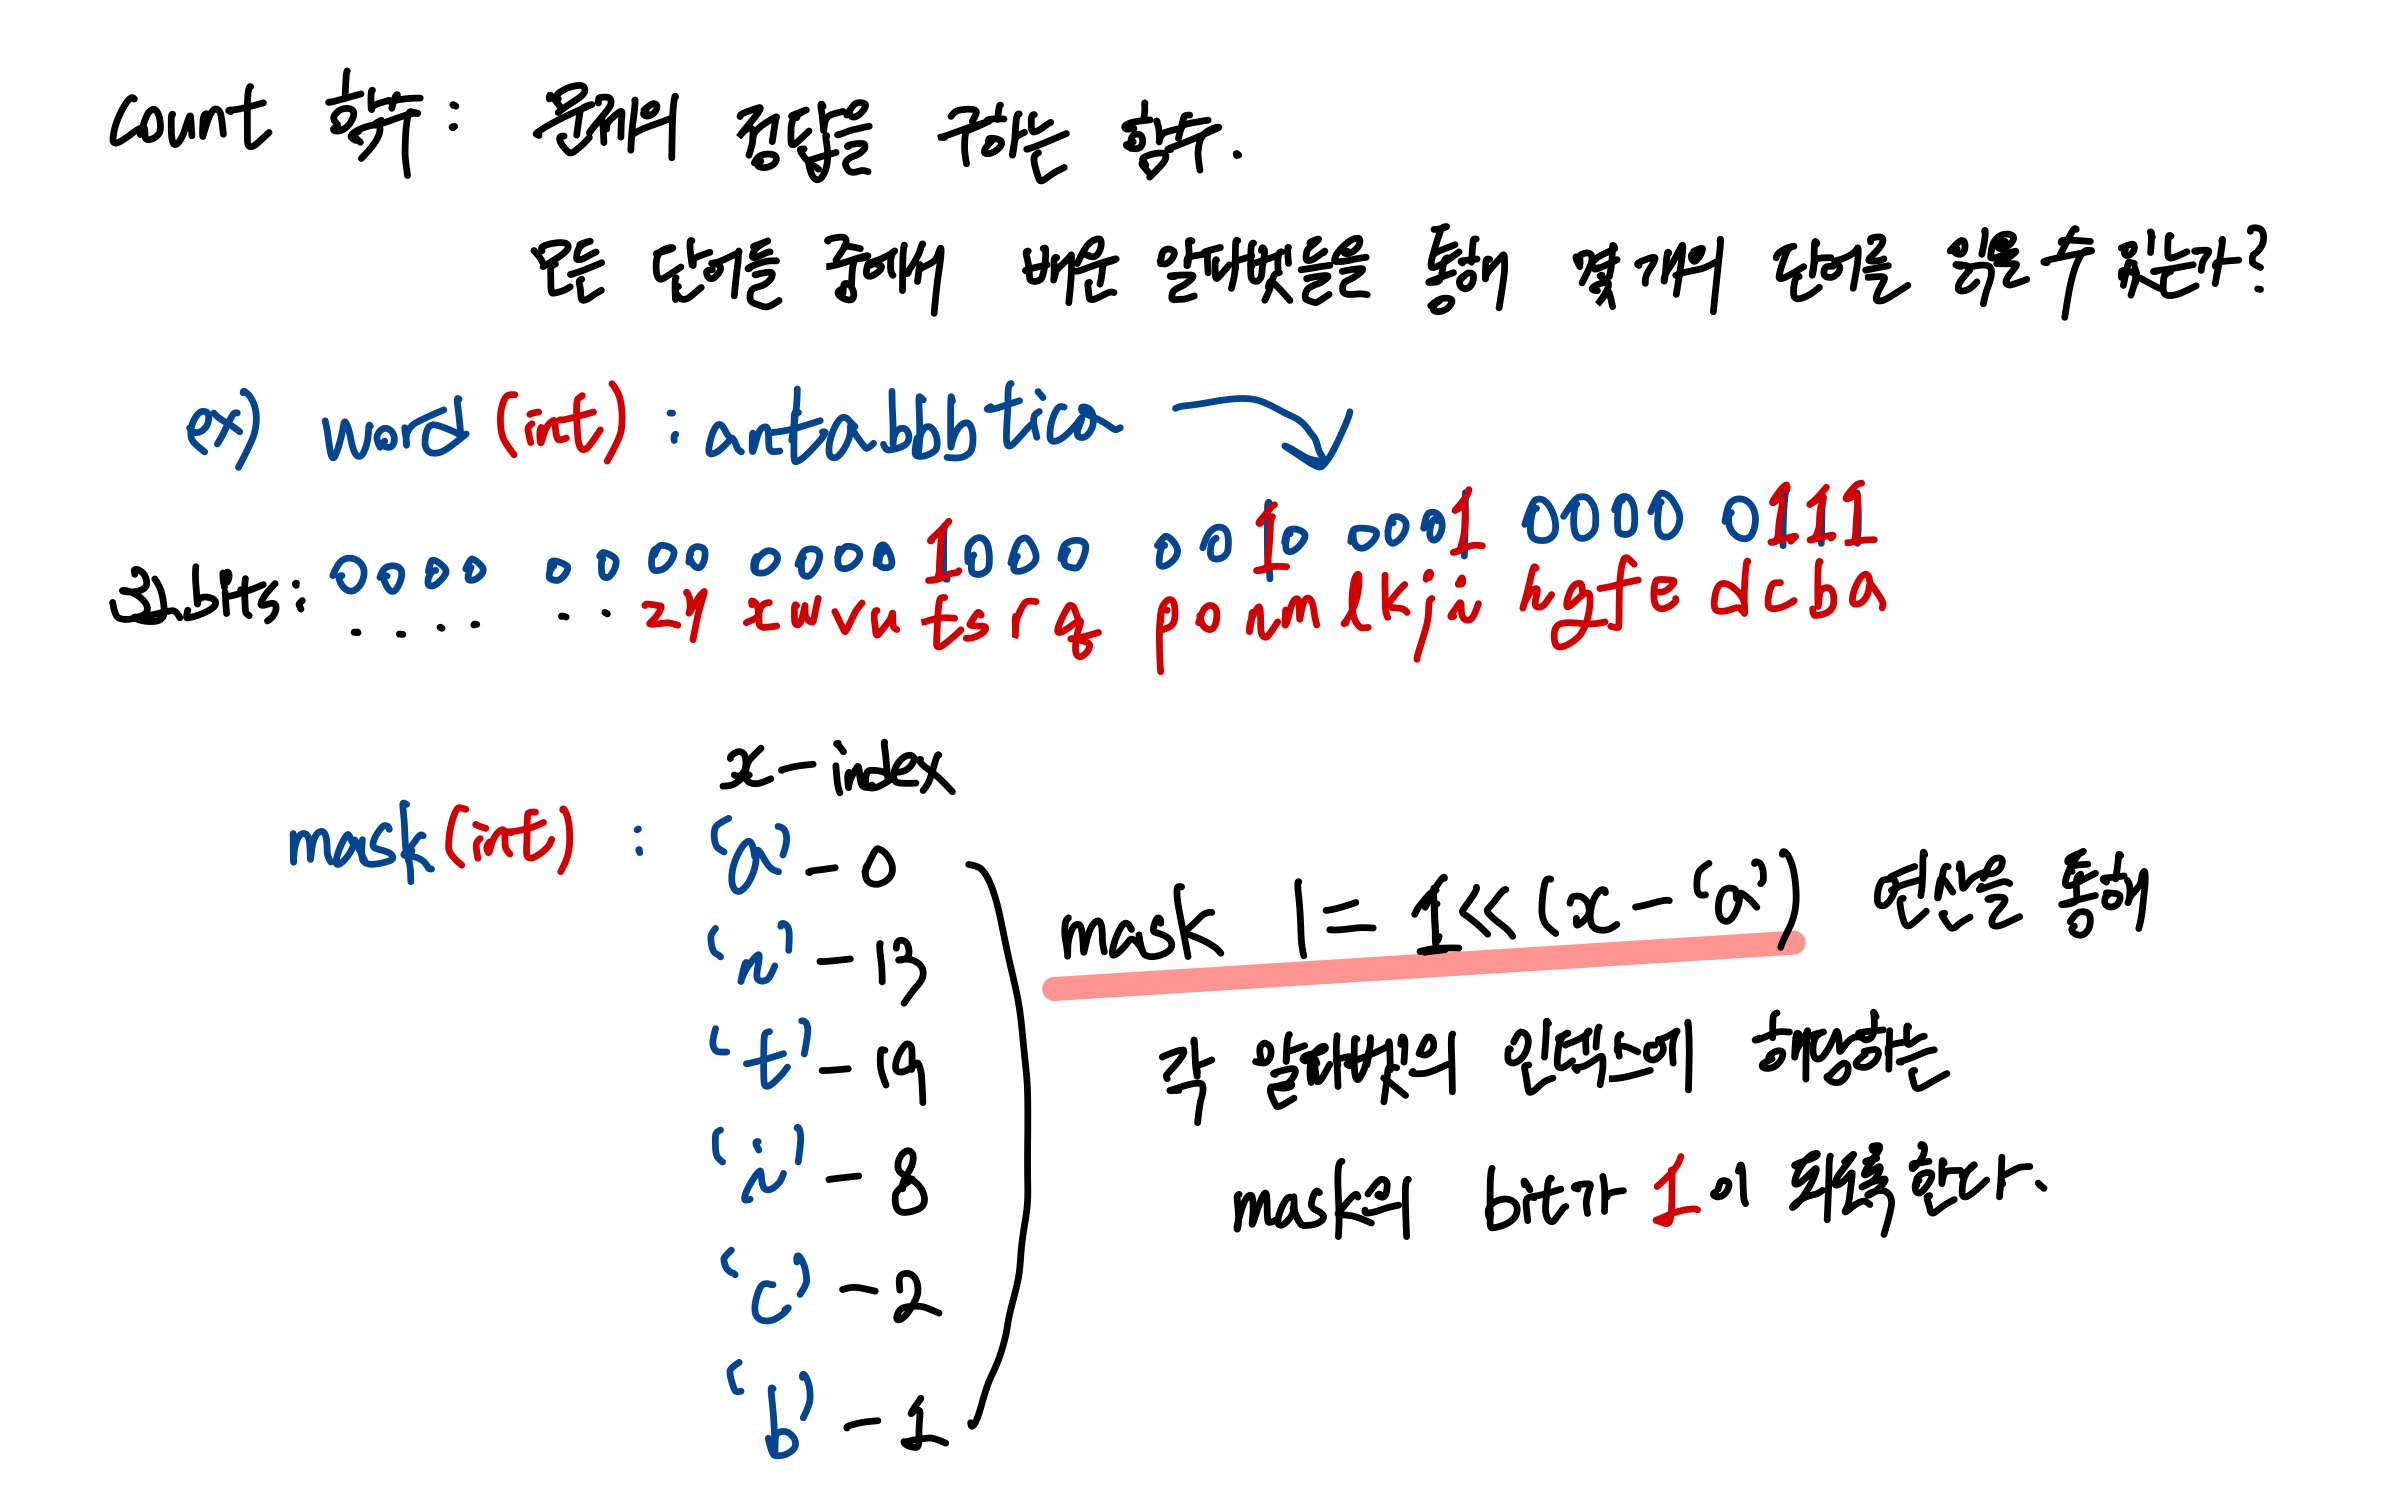 count 함수: 문제의 정답을 구하는 함수.
모든 단어들 중에서 배운 알파벳들을 통해 몇개의 단어를 읽을 수 있는가?
ex) word(int) : antabbbtica
32bits: 0000 0000 0000 1000 0010 0001 0000 0111
.... .. zy xwvu tsrq ponm lkji hgfe dcba
x - index
mask(int) :
'a' - 0
'n' - 13
't' - 19
'i' - 8
'c' - 2
'b' - 1
mask |= 1 << (x - 'a') 연산을 통해
각 알파벳의 인덱스에 해당하는
mask의 bit가 1이 되도록 한다.